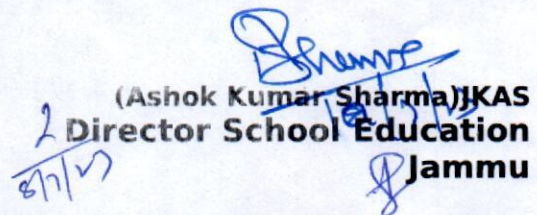 (Ashok Kumar Sharma)JKAS
Director School Education
Jammu